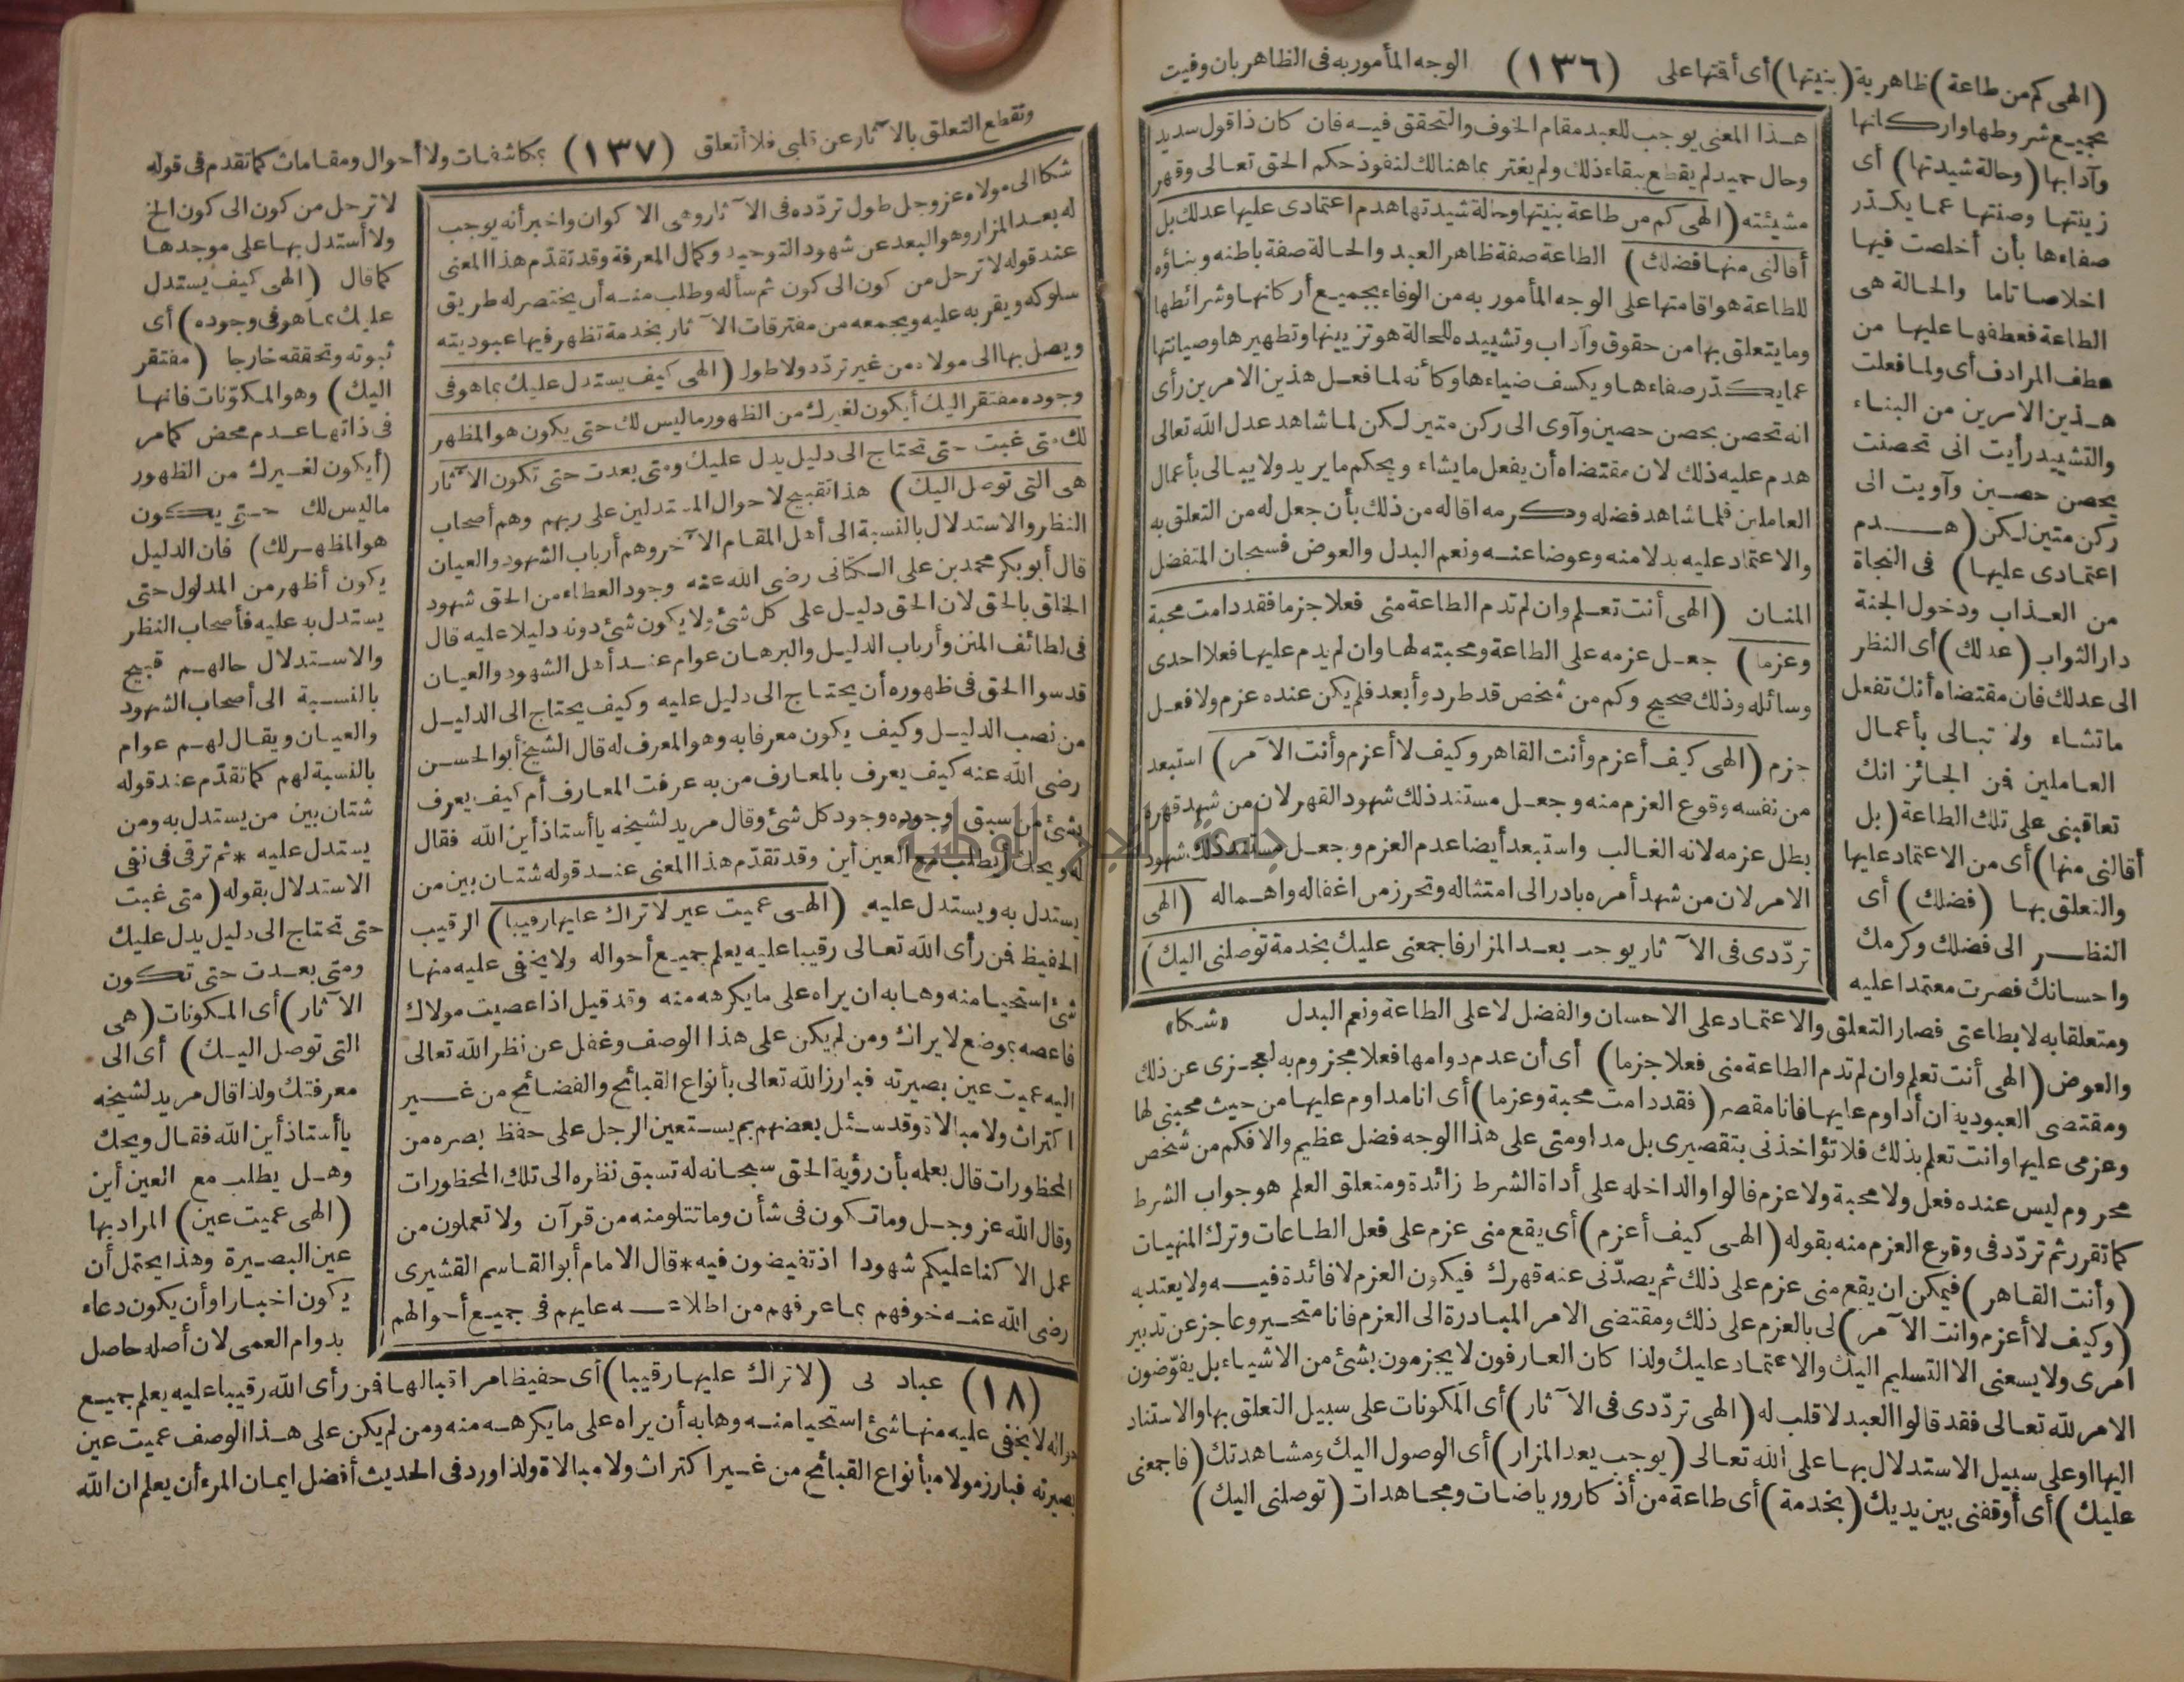 (الهى كم من طاعة) ظاهرية (بنيتها) أى أقتها على (١٣٦) الوجه المأمور به فى الظاهر بان وفيت
بجميع شروطها واركانها
وآدابها (وحالة شيدتها) أى
زينتها وصنتها عما يكدّر
صفاءها بأن أخلصت فيها
اخلاصا تاما والحالة هى
الطاعة فعطفها عليها من
عطف المرادف أى ولما فعلت
هذين الامرين من البناء
والتشييد رأيت انى تحصنت
بحصن حصين وآويت الى
ركن متين لكن (هدم
اعتمادى عليها) فى النجاة
من العذاب ودخول الجنة
دار الثواب (عدلك) أى النظر
الى عدلك فان مقتضاه أنك تفعل
ما تشاء ولا تبالى بأعمال
العاملين فن الجائز انك
تعاقبنى على تلك الطاعة (بل
أقالنى منها) أى من الاعتماد عليها
والتعلق بها (فضلك) أى
النظر الى فضلك وكرمك
واحسانك فصرت معتمدا عليه
هذا المعنى يوجب للعبد مقام الخوف والتحقق فيه فان كان ذا قول سديد
وحال حميد لم يقطع ببقاء ذلك ولم يغتر بما هنالك لنفوذ حكم الحق تعالى وقهر
مشيئته (الهى كم من طاعة بنيتها وحالة شيدتها هدم اعتمادى عليها عدلك بل
أقالنى منها فضلك) الطاعة صفة ظاهر العبد والحالة صفة باطنه وبناؤه
للطاعة هو اقامتها على الوجه المأمور به من الوفاء بجميع أركانها وشرائطها
وما يتعلق بها من حقوق وآداب وتشييده للحالة هو تزيينها وتطهيرها وصيانتها
عما يكدّر صفاءها ويكسف ضياءها وكأنه لما فعل هذين الامرين رأى
انه تحصن بحصن حصين وآوى الى ركن متين لكن لما شاهد عدل الله تعالى
هدم عليه ذلك لان مقتضاه أن يفعل ما يشاء ويحكم ما يريد ولا يبالى بأعمال
العاملين فلما شاهد فضله وكرمه اقاله من ذلك بأن جعل له من التعلق به
والاعتماد عليه بدلا منه وعوضا عنه ونعم البدل والعوض فسبحان المتفضل
المنان (الهى أنت تعلم وان لم تدم الطاعة منى فعلا جزما فقد دامت محبة
وعزما) جعل عزمه على الطاعة ومحبته لها وان لم يدم عليها فعلا احدى
وسائله وذلك صحيح وكم من شخص قد طرد وأبعد فلم يكن عنده عزم ولا فعل
جزم (الهى كيف أعزم وأنت القاهر وكيف لا أعزم وأنت الآمر) استبعد
من نفسه وقوع العزم منه وجعل مستند ذلك شهود القهر لان من شهد قهره
بطل عزمه لانه الغالب واستبعد أيضا عدم العزم وجعل مستند ذلك شهود
الامر لان من شهد أمره بادر الى امتثاله وتحرز من اغفاله واهماله (الهى
تردّدى فى الآثار يوجب بعد المزار فاجمعنى عليك بخدمة توصلنى اليك)
ومتعلقا به لا بطاعتى فصار التعلق والاعتماد على الاحسان والفضل لا على الطاعة ونعم البدل «شكا»
والعوض (الهى أنت تعلم وان لم تدم الطاعة منى فعلا جزما) أى أن عدم دوامها فعلا مجزوم به لعجزى عن ذلك
ومقتضى العبودية ان أداوم عليها فانا مقصر (فقد دامت محبة وعزما) أى انا مداوم عليها من حيث محبتى لها
وعزمى عليها وانت تعلم بذلك فلا تؤاخذنى بتقصيرى بل مداومتى على هذا الوجه فضل عظيم والا فكم من شخص
محروم ليس عنده فعل ولا محبة ولا عزم قالوا والواو الداخله على أداة الشرط زائدة ومتعلق العلم هو جواب الشرط
كما تقرر ثم تردّد فى وقوع العزم منه بقوله (الهى كيف أعزم) أى يقع منى عزم على فعل الطاعات وترك المنهيات
(وأنت القاهر) فيمكن ان يقع منى عزم على ذلك ثم يصدّنى عنه قهرك فيكون العزم لا فائدة فيه ولا يعتد به
(وكيف لا أعزم وانت الآمر) لى بالعزم على ذلك ومقتضى الامر المبادرة الى العزم فانا متحير وعاجز عن تدبير
امرى ولا يسعنى الا التسليم اليك والاعتماد عليك ولذا كان العارفون لا يجزمون بشئ من الاشياء بل يفوّضون
الامر لله تعالى فقد قالوا العبد لا قلب له (الهى تردّدى فى الآثار) أى المكونات على سبيل التعلق بها والاستناد
اليها او على سبيل الاستدلال بها على الله تعالى (يوجب بعد المزار) أى الوصول اليك ومشاهدتك (فاجمعنى
عليك) أى أوقفنى بين يديك (بخدمة) أى طاعة من أذكار ورياضات ومجاهدات (توصلنى اليك)
وتقطع التعلق بالآثار عن قلبى فلا أتعلق (١٣٧) بمكاشفات ولا أحوال ومقامات كما تقدم فى قوله
شكا الى مولاه عز وجل طول تردّده فى الآثار وهى الاكوان واخبر أنه يوجب
له بعد المزار وهو البعد عن شهود التوحيد وكمال المعرفة وقد تقدّم هذا المعنى
عند قوله لا ترحل من كون الى كون ثم سأله وطلب منه أن يختصر له طريق
سلوكه ويقربه عليه ويجمعه من مفترقات الآثار بخدمة تظهر فيها عبوديته
ويصل بها الى مولاه من غير تردّد ولا طول (الهى كيف يستدل عليك بما هو فى
وجوده مفتقر اليك أيكون لغيرك من الظهور ما ليس لك حتى يكون هو المظهر
لك متى غبت حتى تحتاج الى دليل يدل عليك ومتى بعدت حتى تكون الآثار
هى التى توصل اليك) هذا تقبيح لاحوال المستدلين على ربهم وهم أصحاب
النظر والاستدلال بالنسبة الى أهل المقام الآخر وهم أرباب الشهود والعيان
قال أبو بكر محمد بن على الكتانى رضى الله عنه وجود العطاء من الحق شهود
الخلق بالحق لان الحق دليل على كل شئ ولا يكون شئ دونه دليلا عليه قال
فى لطائف المنن وأرباب الدليل والبرهان عوام عند أهل الشهود والعيان
قدسوا الحق فى ظهوره أن يحتاج الى دليل عليه وكيف يحتاج الى الدليل
من نصب الدليل وكيف يكون معرفا به وهو المعرف له قال الشيخ أبو الحسن
رضى الله عنه كيف يعرف بالمعارف من به عرفت المعارف أم كيف يعرف
بشئ من سبق وجوده وجود كل شئ وقال مريد لشيخه يا أستاذ أين الله فقال
له ويحك أيطلب مع العين أين وقد تقدّم هذا المعنى عند قوله شتان بين من
يستدل به ويستدل عليه (الهى عميت عين لا تراك عليها رقيبا) الرقيب
الحفيظ فن رأى الله تعالى رقيبا عليه يعلم جميع أحواله ولا يخفى عليه منها
شئ استحيا منه وهابه ان يراه على ما يكرهه منه وقد قيل اذا عصيت مولاك
فاعصه بموضع لا يراك ومن لم يكن على هذا الوصف وغفل عن نظر الله تعالى
اليه عميت عين بصيرته فبارز الله تعالى بأنواع القبائح والفضائح من غير
اكتراث ولا مبالاة وقد سئل بعضهم بم يستعين الرجل على حفظ بصره من
المحظورات قال بعلمه بأن رؤية الحق سبحانه له تسبق نظره الى تلك المحظورات
وقال الله عز وجل وما تكون فى شأن وما تتلو منه من قرآن ولا تعملون من
عمل الا كنا عليكم شهودا اذ تفيضون فيه * قال الامام أبو القاسم القشيرى
رضى الله عنه خوفهم بما عرفهم من اطلاعه عليهم فى جميع أحوالهم
لا ترحل من كون الى كون الخ
ولا أستدل بها على موجدها
كما قال (الهى كيف يستدل
عليك بما هو فى وجوده) أى
ثبوته وتحققه خارجا (مفتقر
اليك) وهو المكوّنات فانها
فى ذاتها عدم محض كما مر
(أيكون لغيرك من الظهور
ما ليس لك حتى يكون
هو المظهر لك) فان الدليل
يكون أظهر من المدلول حتى
يستدل به عليه فأصحاب النظر
والاستدلال حالهم قبيح
بالنسبة الى أصحاب الشهود
والعيان ويقال لهم عوام
بالنسبة لهم كما تقدّم عند قوله
شتان بين من يستدل به ومن
يستدل عليه * ثم ترقى فى نفى
الاستدلال بقوله (متى غبت
حتى تحتاج الى دليل يدل عليك
ومتى بعدت حتى تكون
الآثار) أى المكونات (هى
التى توصل اليك) أى الى
معرفتك ولذا قال مريد لشيخه
يا أستاذ أين الله فقال ويحك
وهل يطلب مع العين أين
(الهى عميت عين) المراد بها
عين البصيرة وهذا يحتمل أن
يكون اخبارا وأن يكون دعاء
بدوام العمى لان أصله حاصل
(١٨) عباد لى (لا تراك عليها رقيبا) أى حفيظا مراقبا لها فن رأى الله رقيبا عليه يعلم جميع
وانه لا يخفى عليه منها شئ استحيا منه وهابه أن يراه على ما يكرهه منه ومن لم يكن على هذا الوصف عميت عين
بصيرته فبارز مولاه بأنواع القبائح من غير اكتراث ولا مبالاة ولذا ورد فى الحديث أفضل ايمان المرء أن يعلم ان الله
جامعة النجاح الوطنية